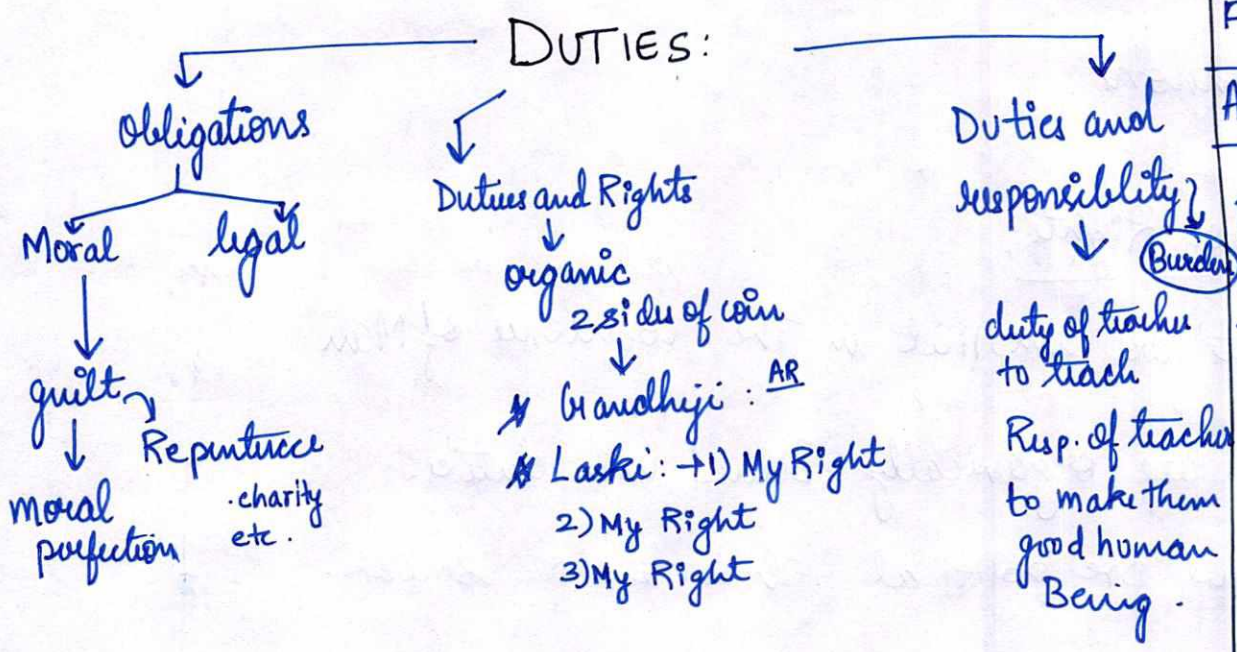 DUTIES:
Obligations
Moral
legal
guilt
Repentnce
moral
perfection
.charity
etc.
Duties and Rights
organic
2 sides of coin
Gandhiji : AR
Laski: → 1) My Right
2) My Right
3) My Right
Duties and
responsiblity
Burden
duty of teacher
to teach
Resp. of teacher
to make them
good human
Being.
F
A